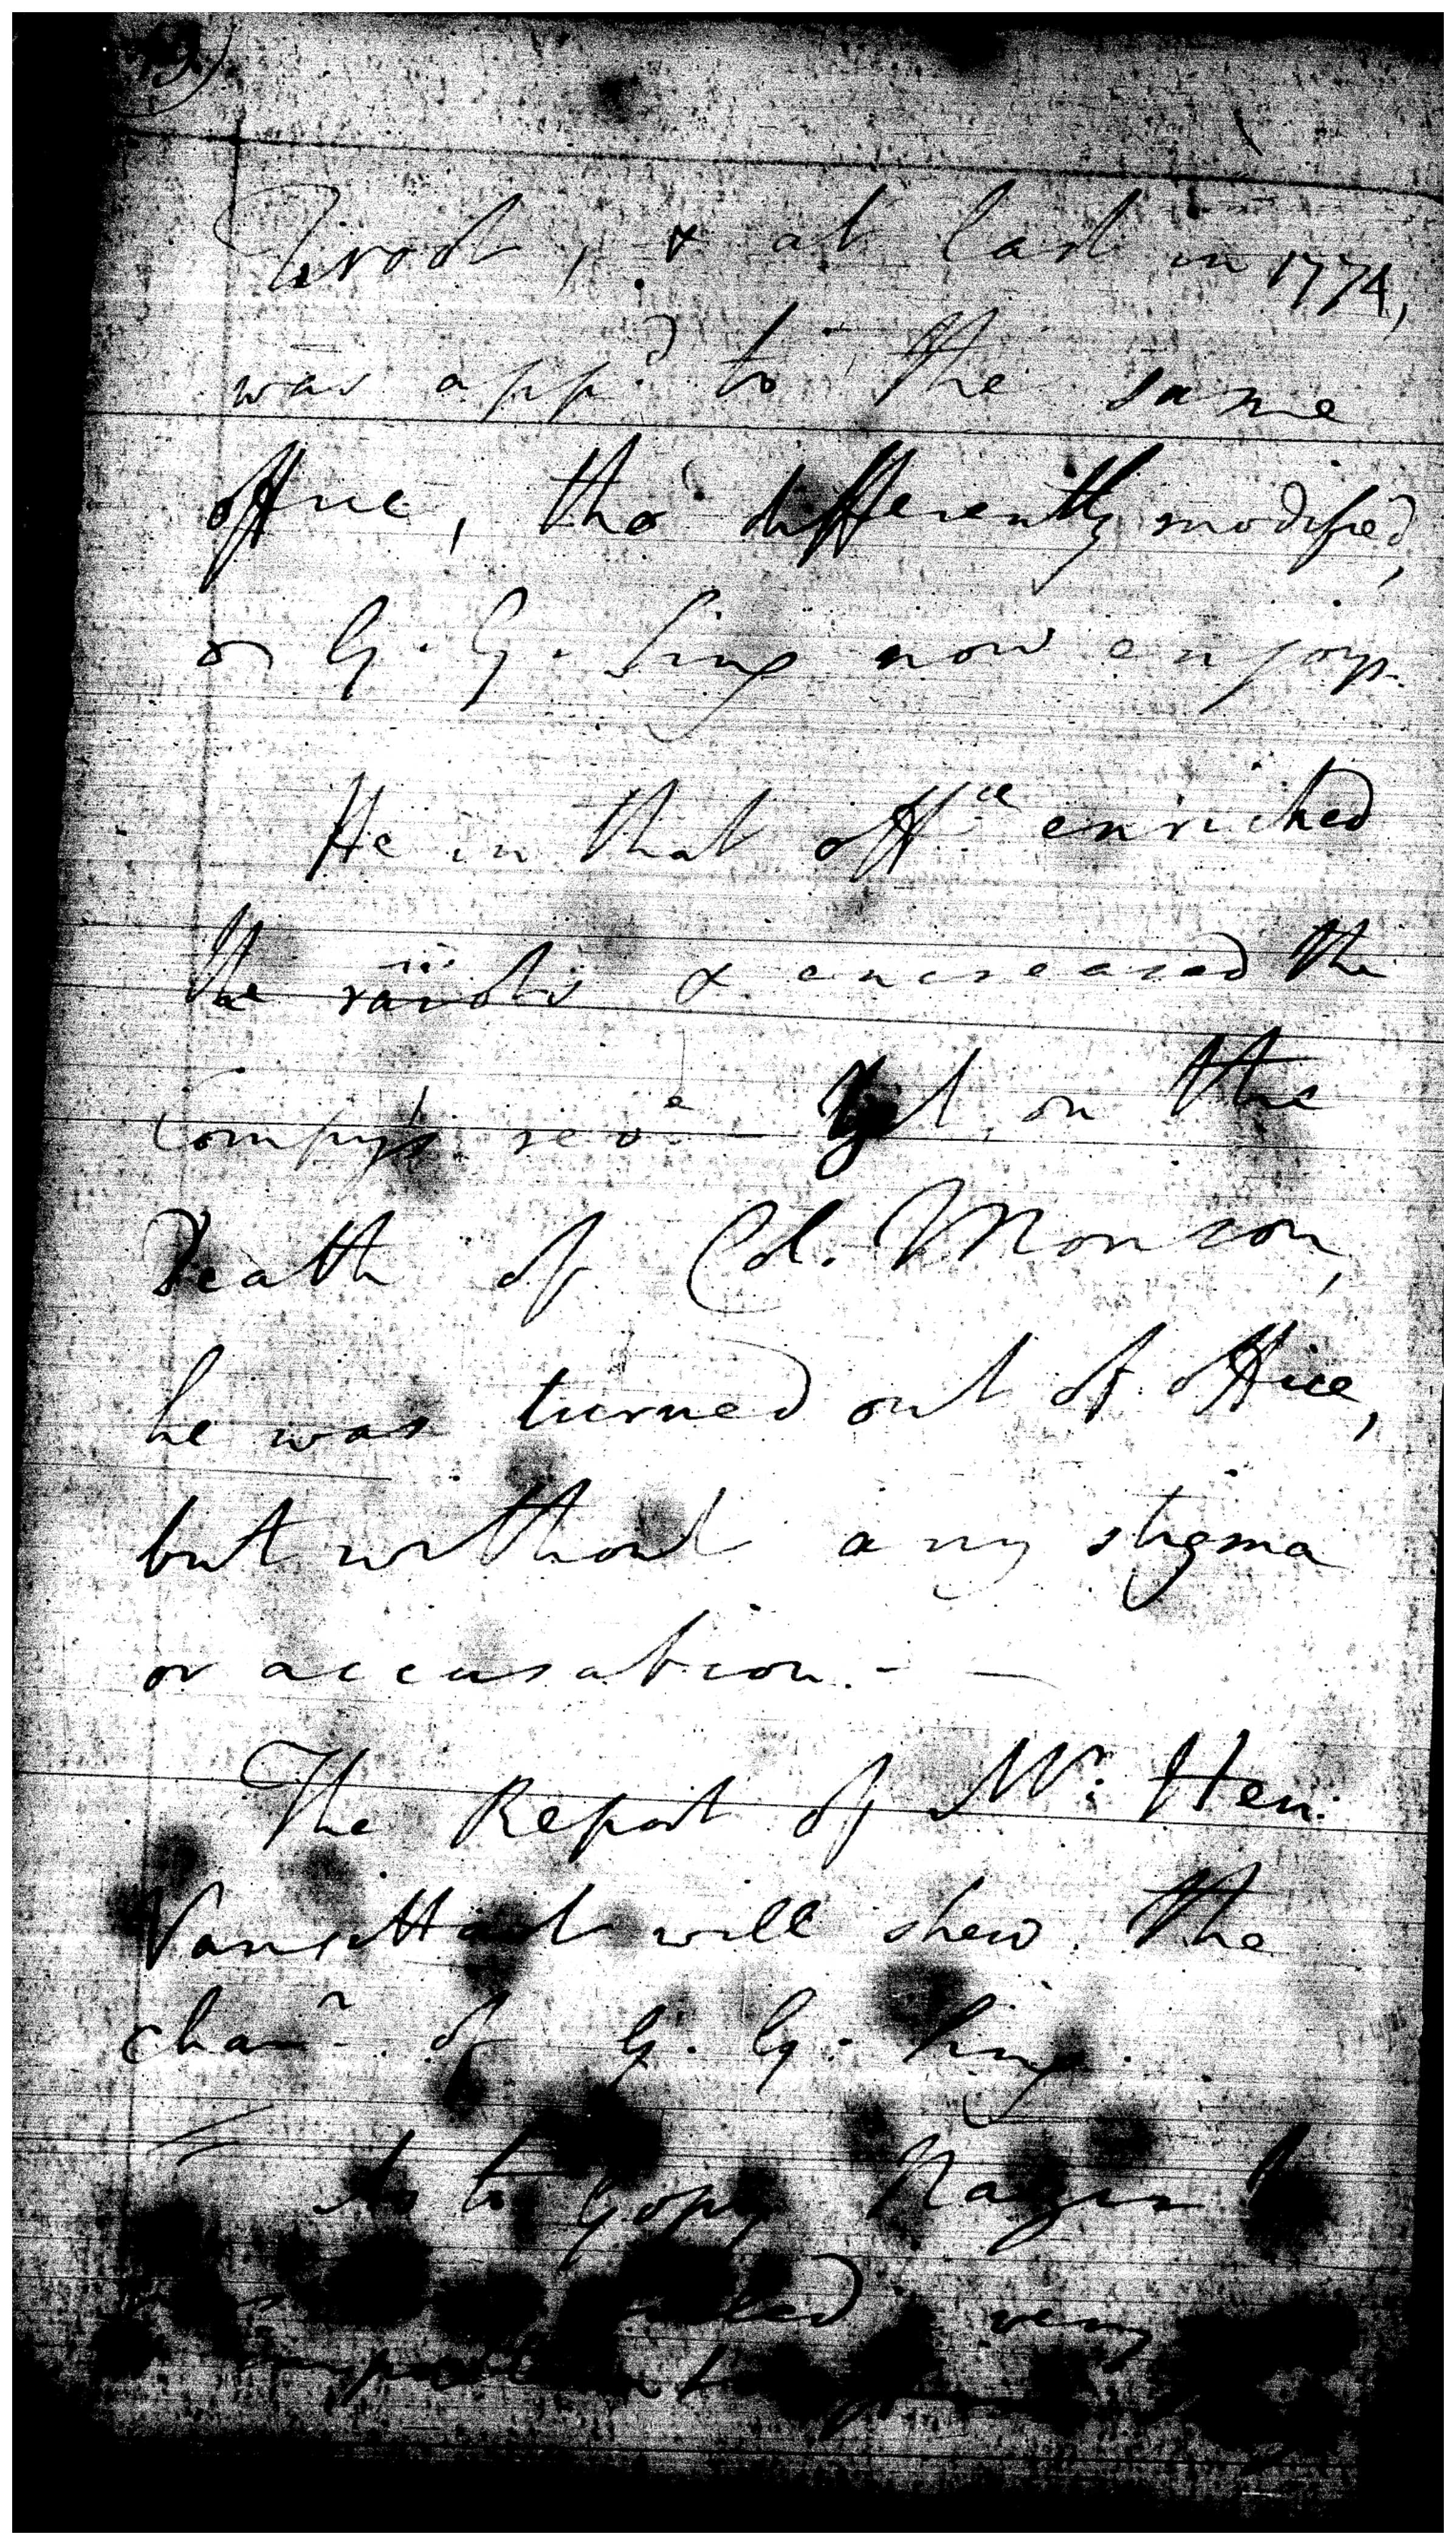 & at last in 1774,
was app.d to the same
office, tho' differently modified,
G. G. Sing now enjoys.
He in that offce enriched
the raïots & encreased the
Compy's reve — Yet, on the
Death of Col. Monson,
he was turned out of office,
but without any stigma
or accusation. — —
The Report of Mr: Hen:
Vansittart will shew the
charr. of G. G. Sing.
As to Gopy
very